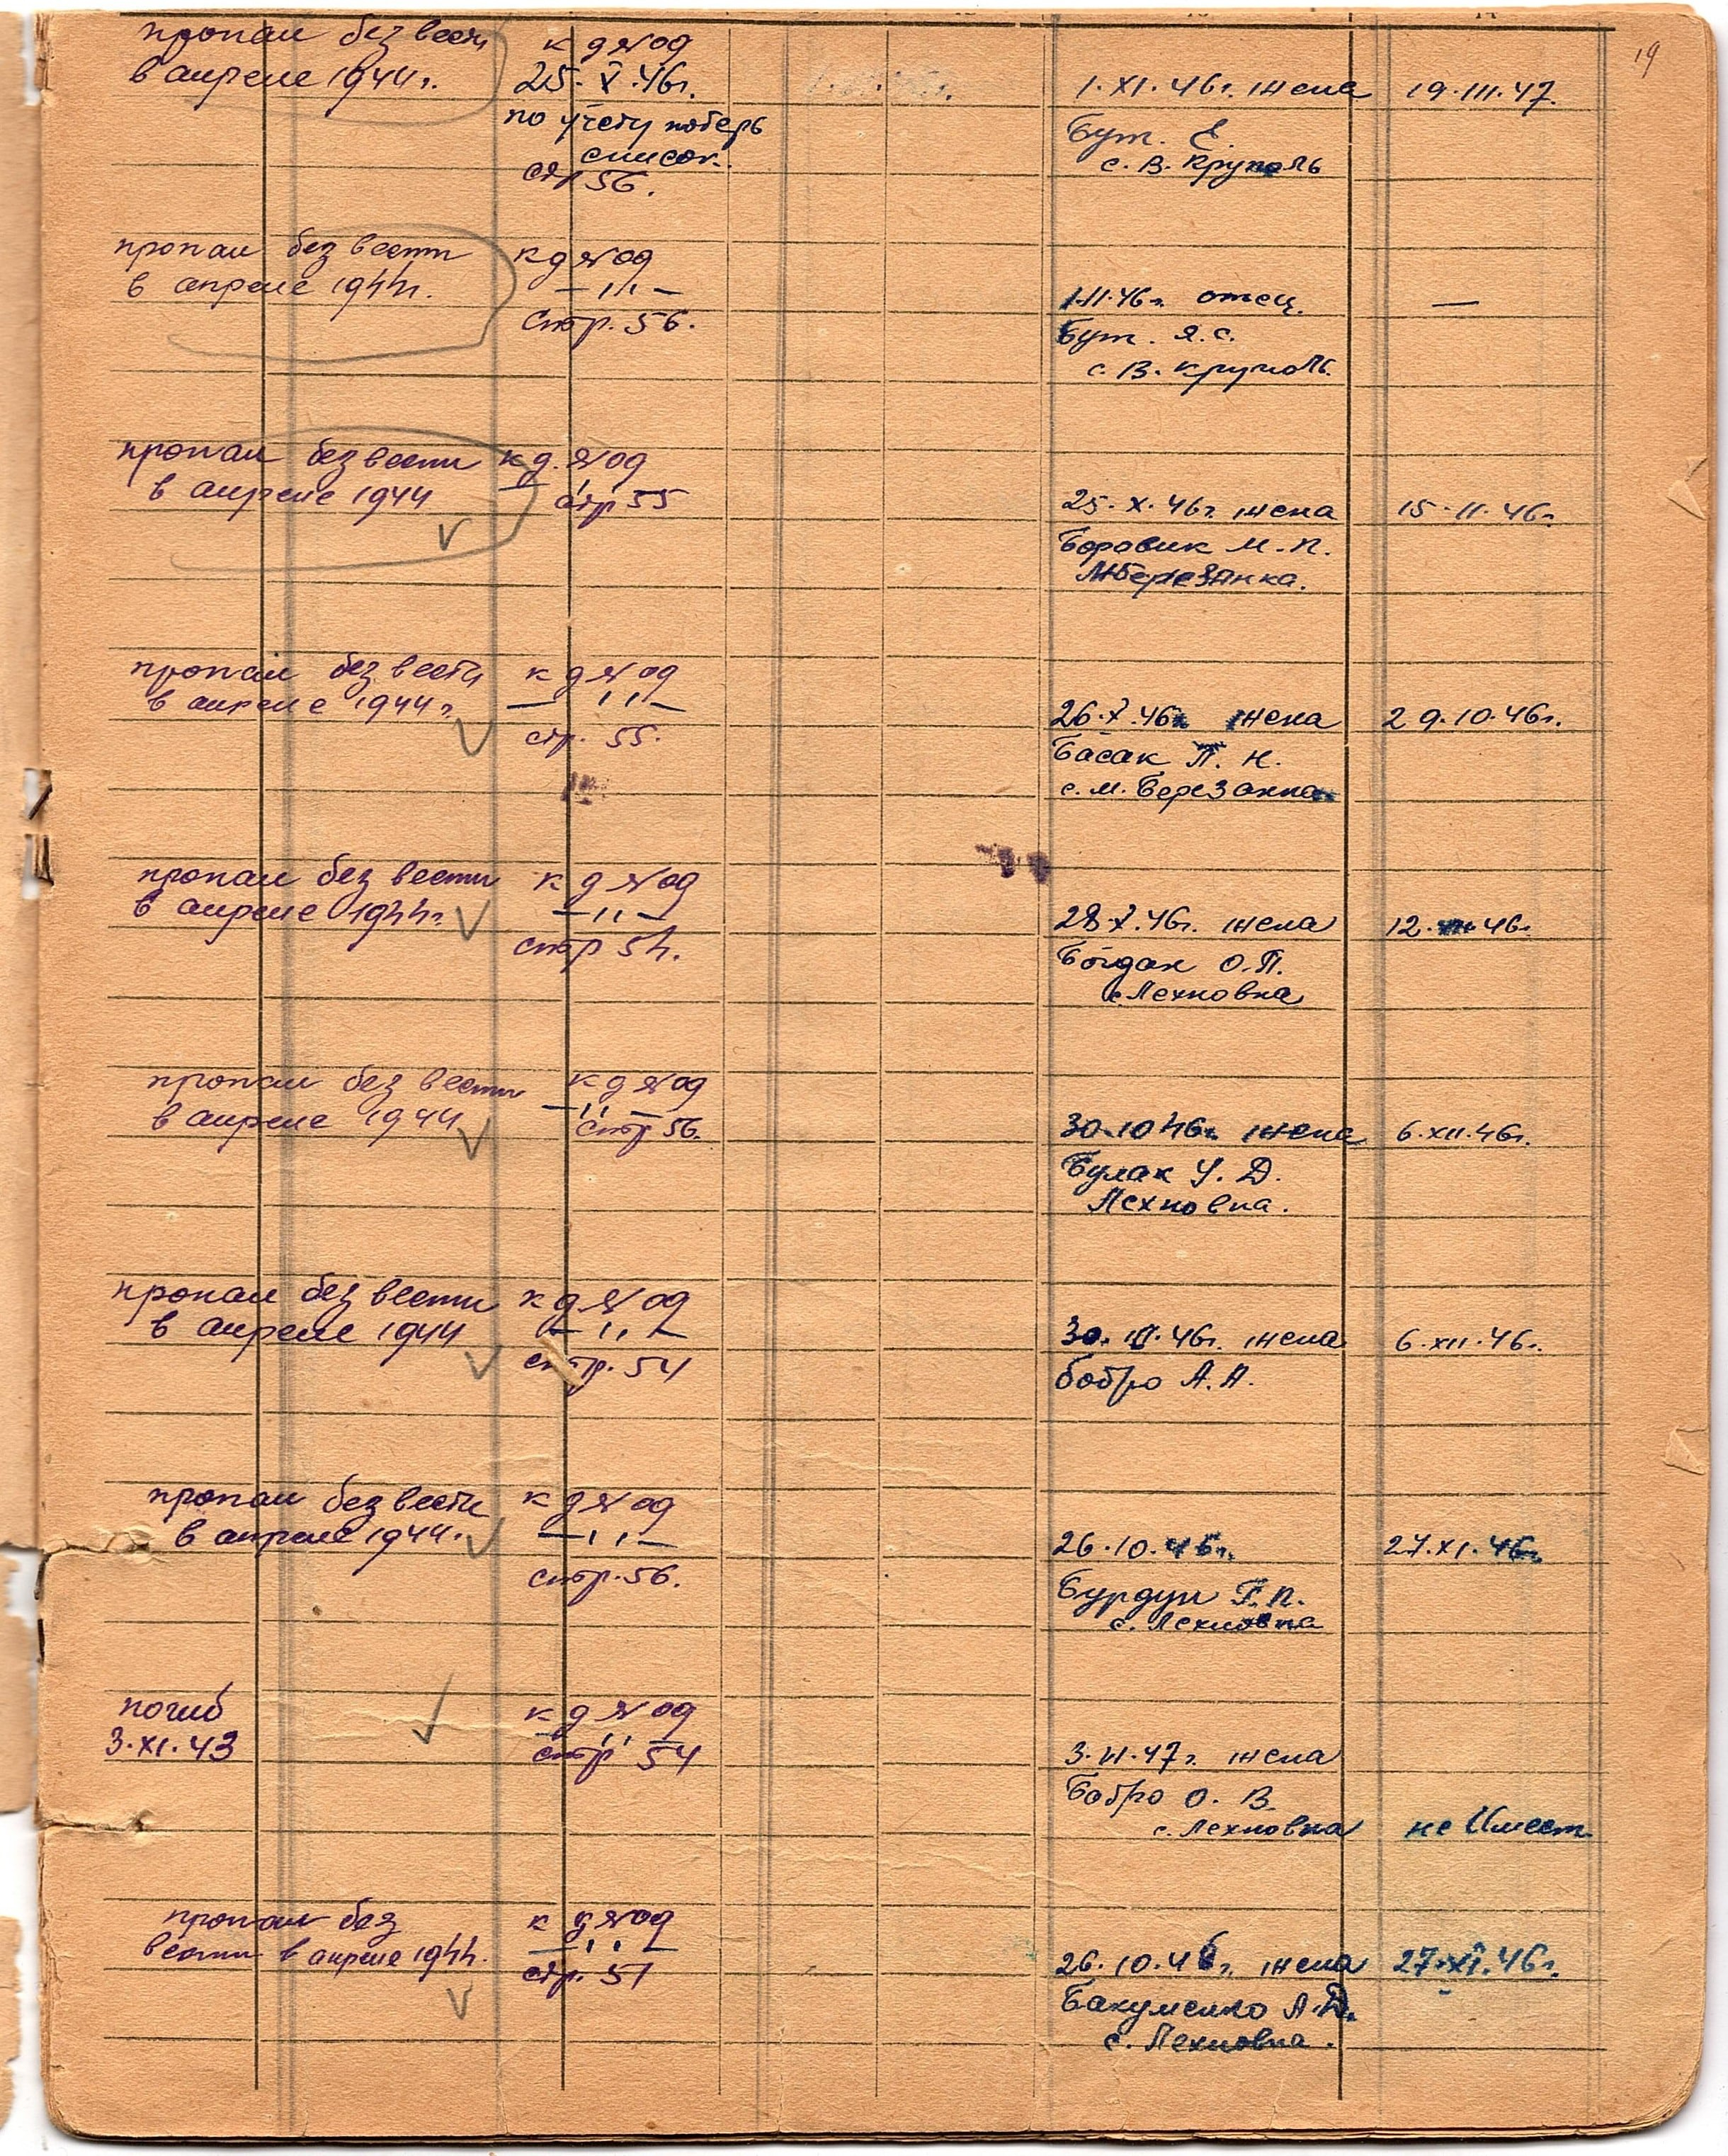 19
пропал без вести
в апреле 1944 г.
к д № 09
25. X. 46 г.
по учету потерь
список.
стр 56.
1. XI. 46 г. жена
Бут. Е.
с. В. Круполь
19. III. 47.
пропал без вести
в апреле 1944 г.
к д № 09
— ,, —
Стр. 56.
1.II.46 г. отец.
Бут. Я. С.
с. В. Круполь.
—
пропал без вести
в апреле 1944
к д. № 09
стр 55
25. X. 46 г. жена
Боровик М. П.
М Березанка.
15. 11. 46 г.
пропал без вести
в апреле 1944 г.
к д № 09
— ,, —
стр. 55.
26. X. 46 г. жена
Басак П. Н.
с. М. Березанка
29. 10. 46 г.
пропал без вести
в апреле 1944 г.
к д № 09
— ,, —
стр 54.
28. X. 46 г. жена
Богдан О. П.
с. Лехновка
12. 46 г.
пропал без вести
в апреле 1944
к д № 09
— ,, —
стр 56.
30. 10 46 г. жена
Булак У. Д.
Лехновка.
6. XII. 46 г.
пропал без вести
в апреле 1944
к д № 09
— ,, —
стр. 54
30. 46 г. жена
бобро А. А.
6. XII. 46 г.
пропал без вести
в апреле 1944.
к д № 09
— ,, —
стр. 56.
26. 10. 46 г.
Бурдун Г. П.
с. Лехновка
27. XI. 46 г.
погиб
3. XI. 43
к д № 09
— ,, —
стр 54
3. II. 47 г. жена
Бобро О. В.
с. Лехновка
не Имеет
пропал без
вести в апреле 1944.
к д № 09
— ,, —
стр. 51
26. 10. 46 г. жена
Бакуменко А. Д.
с. Лехновка.
27. XI. 46 г.